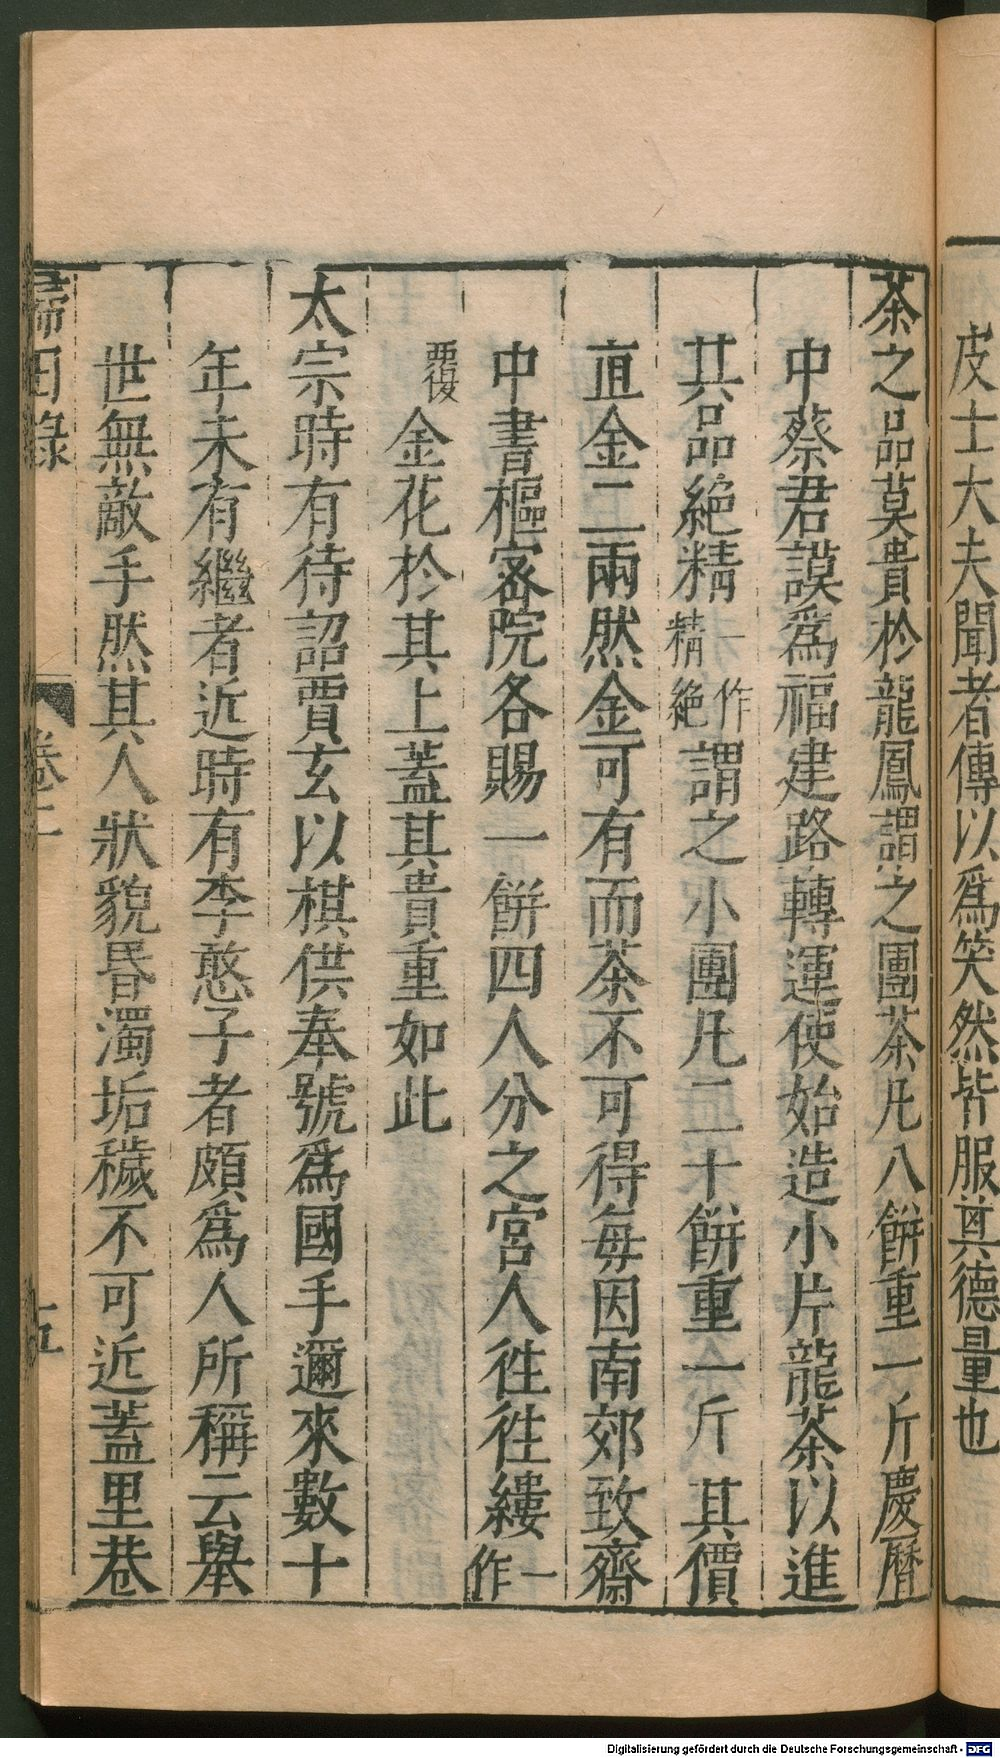 皮士大夫聞者傳以爲笑然皆服其德量也
茶之品莫貴於龍鳳謂之團茶凡八餅重一斤慶曆
中蔡君謨爲福建路轉運使始造小片龍茶以進
其品絕精一作精絕謂之小團凡二十餅重一斤其價
直金二兩然金可有而茶不可得每因南郊致齋
中書樞密院各賜一餅四人分之宮人往往縷一作
覆金花於其上蓋其貴重如此
太宗時有待詔賈玄以棋供奉號爲國手邇來數十
年未有繼者近時有李憨子者頗爲人所稱云舉
世無敵手然其人狀貌昏濁垢穢不可近蓋里巷
歸田錄 卷二 五
Digitalisierung gefördert durch die Deutsche Forschungsgemeinschaft - DFG